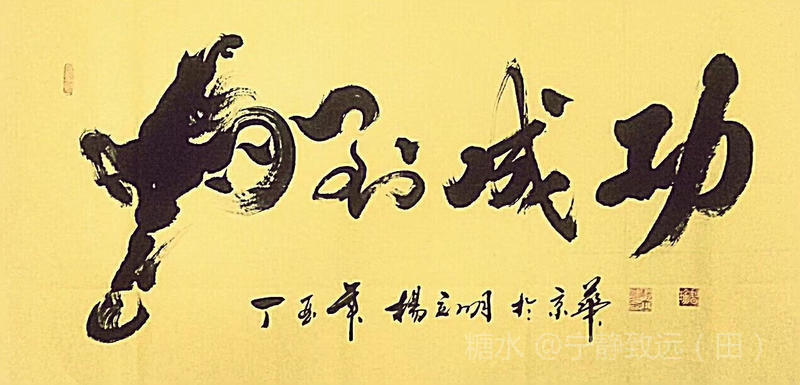 馬到成功
丁酉年 楊立明 於京華
糖水 @宁静致远（田）